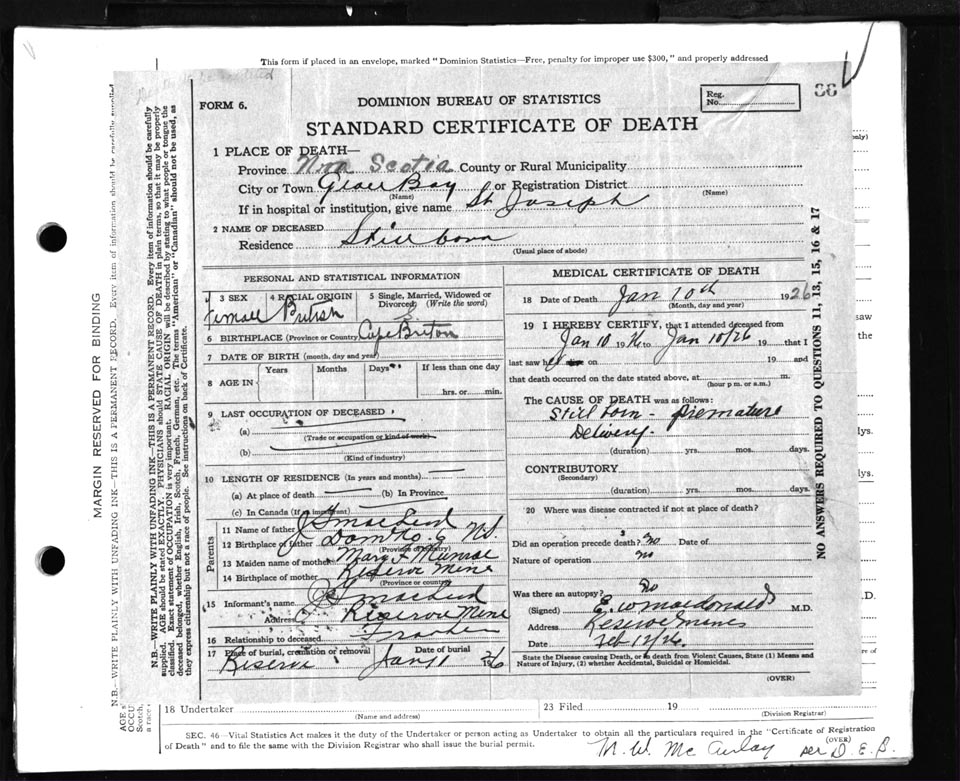 This form if placed in an envelope, marked "Dominion Statistics—Free, penalty for improper use $300," and properly addressed
FORM 6.
DOMINION BUREAU OF STATISTICS
Reg. No.
88
STANDARD CERTIFICATE OF DEATH
1 PLACE OF DEATH—
Province Nova Scotia County or Rural Municipality
City or Town Glace Bay or Registration District
(Name) (Name)
If in hospital or institution, give name St Joseph
2 NAME OF DECEASED Still born
Residence
(Usual place of abode)
PERSONAL AND STATISTICAL INFORMATION
3 SEX 4 RACIAL ORIGIN 5 Single, Married, Widowed or Divorced (Write the word)
Female British S
6 BIRTHPLACE (Province or Country) Cape Breton
7 DATE OF BIRTH (month, day and year)
8 AGE IN Years Months Days If less than one day
hrs. or min.
9 LAST OCCUPATION OF DECEASED
(a)
(Trade or occupation or kind of work)
(b)
(Kind of industry)
10 LENGTH OF RESIDENCE (In years and months)
(a) At place of death (b) In Province
(c) In Canada (If an immigrant)
Parents
11 Name of father J S MacLeod
12 Birthplace of father
(Province or country)
13 Maiden name of mother Mary F Munroe
14 Birthplace of mother Reserve Mine
(Province or country)
15 Informant's name J S MacLeod
Address Reserve Mine
16 Relationship to deceased Father
17 Place of burial, cremation or removal Date of burial
Reserve Jany 11 1926
MEDICAL CERTIFICATE OF DEATH
18 Date of Death Jan 10th 1926
(Month, day and year)
19 I HEREBY CERTIFY, that I attended deceased from
Jan 10 1926 to Jan 10/26 19 and
last saw her on 19 and
that death occurred on the date stated above, at m.
(hour p.m. or a.m.)
The CAUSE OF DEATH was as follows:
Still born - premature
Delivery.
(duration) yrs. mos. days.
CONTRIBUTORY
(Secondary)
(duration) yrs. mos. days.
20 Where was disease contracted if not at place of death?
Did an operation precede death? No Date of
Nature of operation No
Was there an autopsy? No
(Signed) E. W. Macdonald M.D.
Address Reserve Mines
Date Feb 12/26.
State the Disease causing Death, or in death from Violent Causes, State (1) Means and
Nature of Injury, (2) whether Accidental, Suicidal or Homicidal.
(OVER)
NO ANSWERS REQUIRED TO QUESTIONS 11, 13, 15, 16 & 17
MARGIN RESERVED FOR BINDING
N.B.—WRITE PLAINLY WITH UNFADING INK—THIS IS A PERMANENT RECORD. Every item of information should be carefully supplied
N.B.—WRITE PLAINLY WITH UNFADING INK—THIS IS A PERMANENT RECORD. Every item of information should be carefully
supplied. AGE should be stated EXACTLY. PHYSICIANS should STATE CAUSE OF DEATH in plain terms, so that it may be properly
classified. Exact statement of OCCUPATION is very important. RACIAL ORIGIN will be described by stating to what people or tongue the
deceased belonged, whether English, Irish, Scotch, French, German, etc. The terms "American" or "Canadian" should not be used, as
they express citizenship but not a race of people. See instructions on back of Certificate.
AGE s
OCCU
Scotch,
a race
only)
saw
the
lys.
lys.
.D.
and
re of
18 Undertaker
(Name and address)
23 Filed 19
(Division Registrar)
SEC. 46—Vital Statistics Act makes it the duty of the Undertaker or person acting as Undertaker to obtain all the particulars required in the "Certificate of Registration
of Death" and to file the same with the Division Registrar who shall issue the burial permit.
(OVER)
M. W. Mc Aulay per D. E. B.